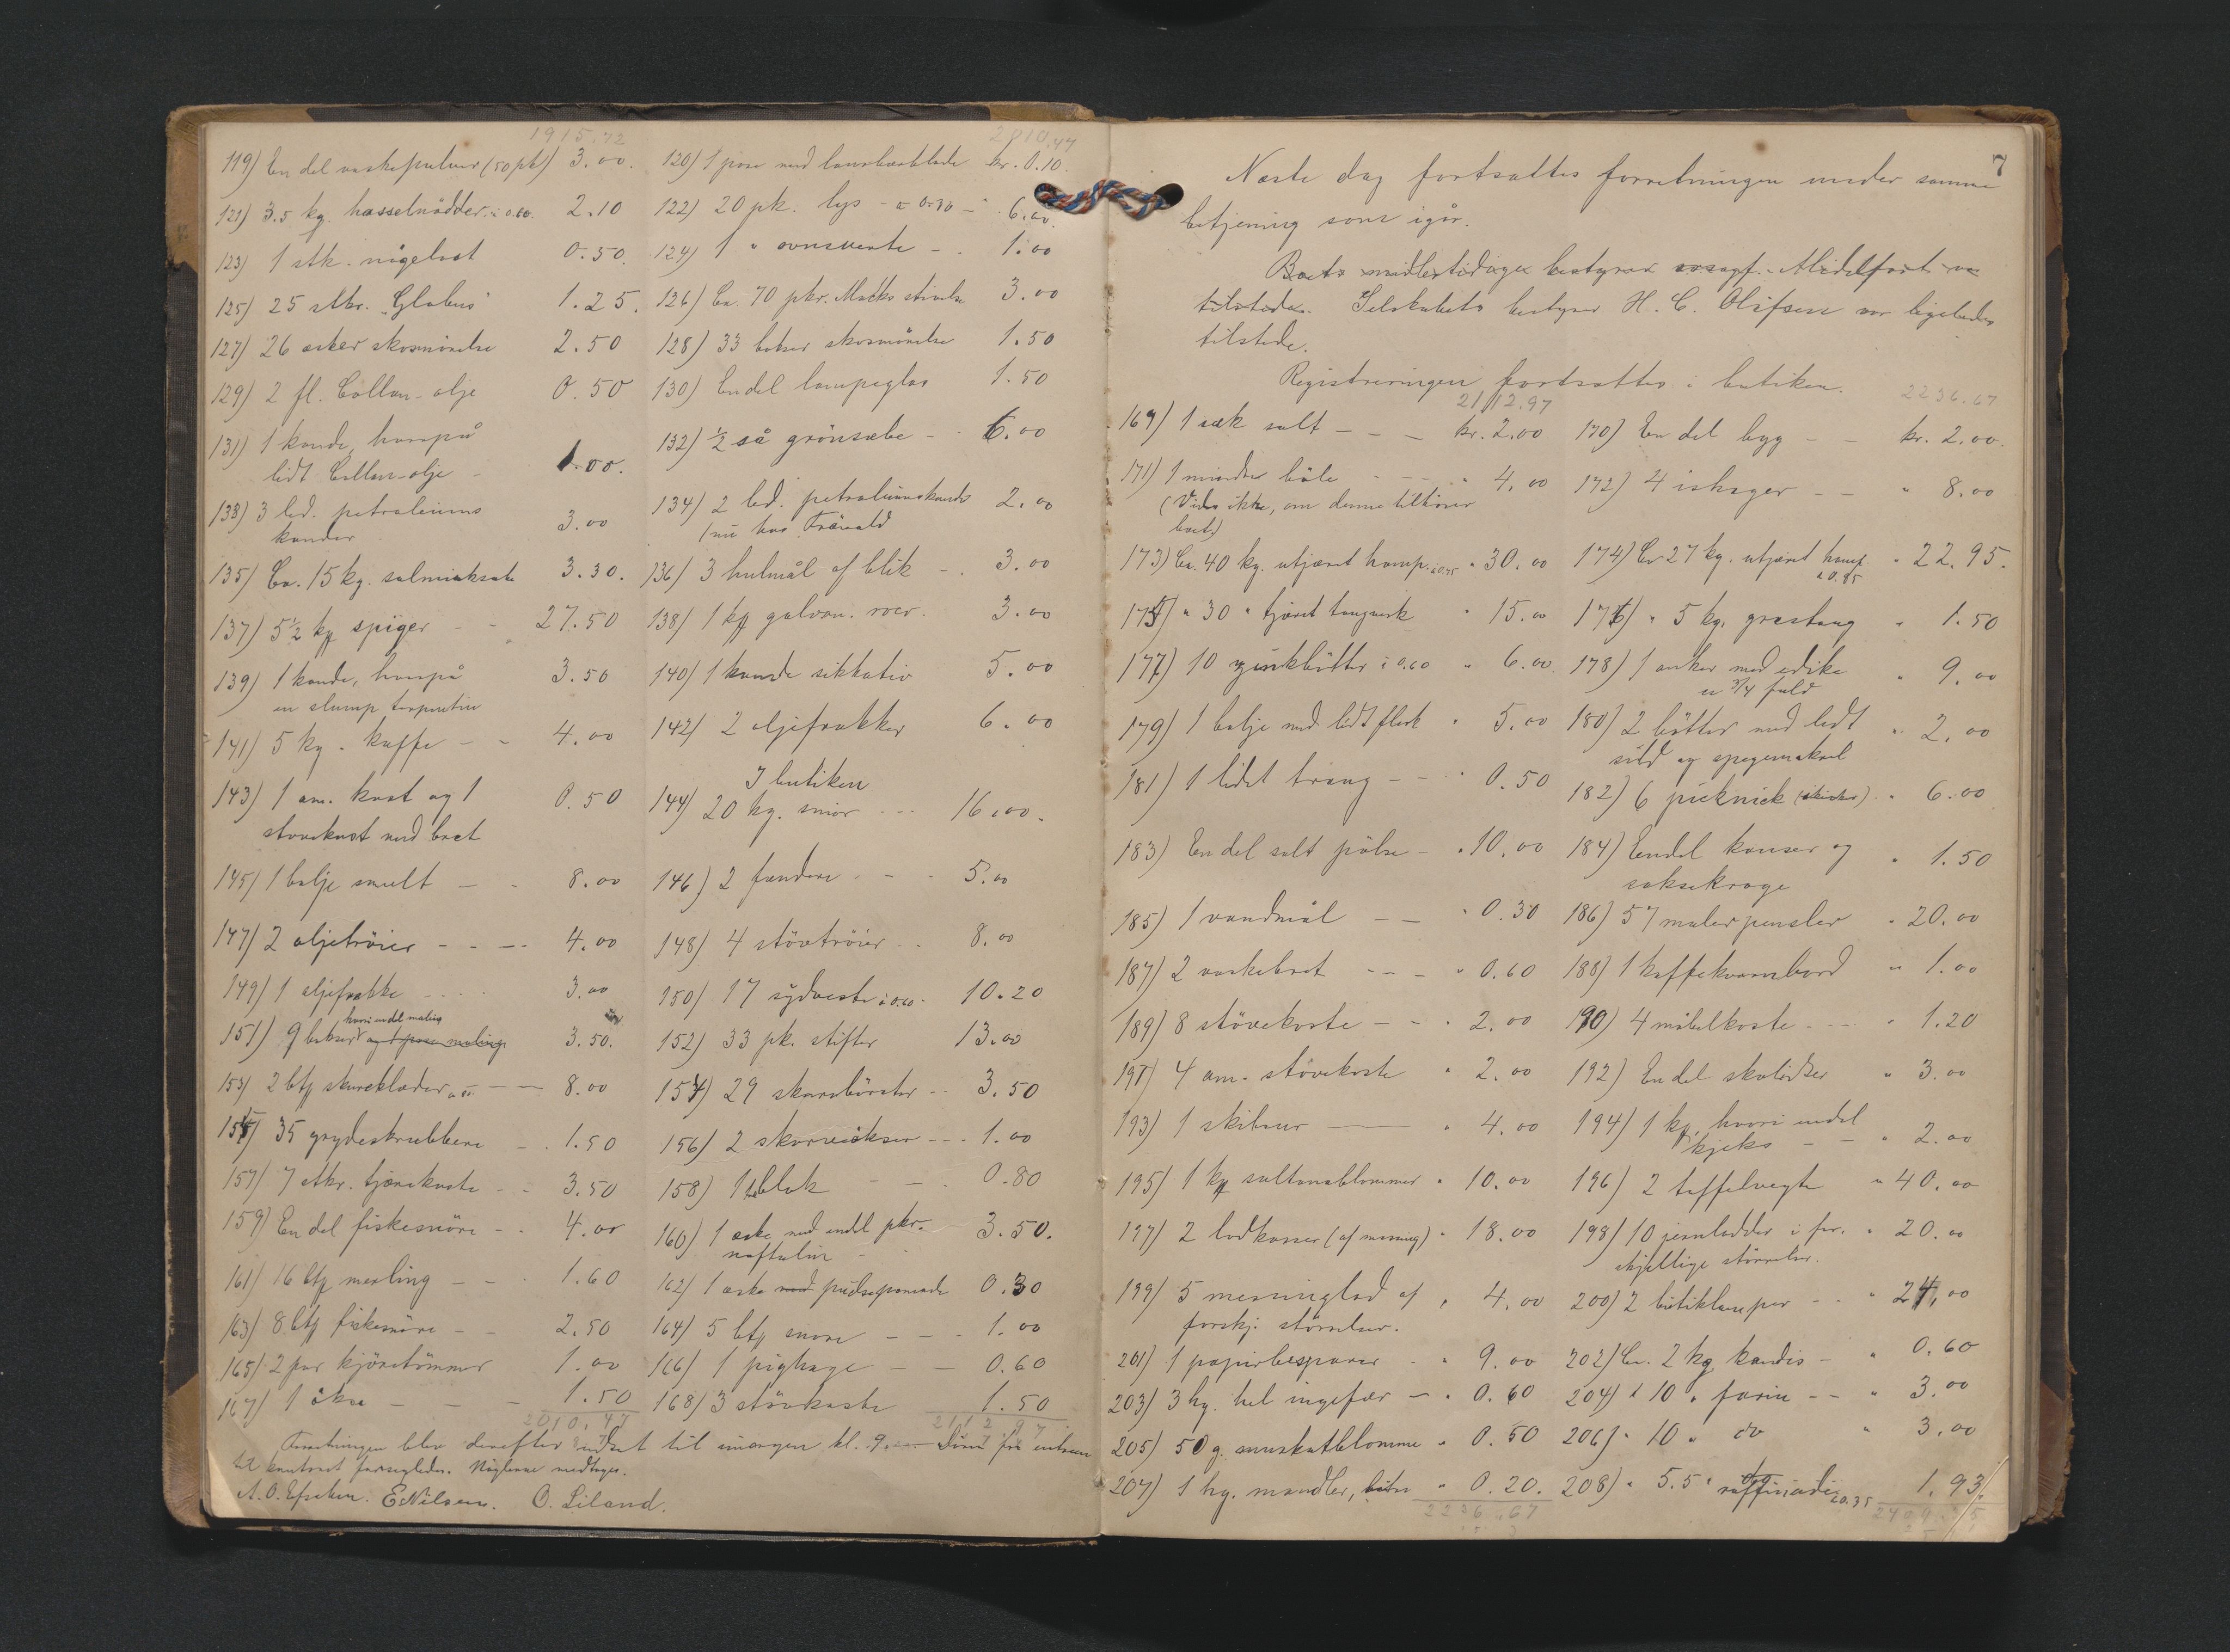 1915.72
119) En del vaskepulver (50 pk) 3.00.
121) 3.5 kg. hasselnødder à 0.60. 2.10
123) 1 stk. nøgelost 0.50.
125) 25 stkr. "Globus" 1.25.
127) 26 æsker skosmörelse 2.50
129) 2 fl. Collan-olje 0.50
131) 1 kande, hvorpå
lidt Collan-olje - 1.00.
133) 3 led. petroleums
kander 3.00
135) Ca. 15 kg. salmiaksæbe 3.30.
137) 5½ kg spiger - - 27.50
139) 1 kande, hvorpå 3.50
en slump terpentin
141) 5 kg. kaffe - - 4.00
143) 1 am. kost og 1 0.50
stovekost med bret
145) 1 balje smult - - 8.00
147) 2 oljetröier - - - 4.00
149) 1 oljefrakke - - - 3.00
hvori endel maling
151) 9 bokser og 1 pose maling 3.50.
153) 2 btg skureklæder - 8.00
155) 35 grydeskrubbere - 1.50
157) 7 stkr. tjærekoste - - 3.50
159) En del fiskesnöre - - 4.00
161) 16 btg merling - - 1.60
163) 8 btg fiskesnöre - - 2.50
165) 2 par kjöretömmer 1.00
167) 1 økse - - - 1.50
2010.47
2010.47
120) 1 pose med laurbærblade kr. 0.10
122) 20 pk. lys - à 0.30 - 6.00
124) 1 " ovnsverte - 1.00
126) Ca. 70 pkr. Macks stivelse 3.00
128) 33 bokser skosmörelse 1.50
130) Endel lampeglas 1.50
132) ½ så grönsæbe - 6.00
134) 2 led. petroleumskander 2.00
136) 3 hulmål af blik - 3.00
138) 1 kg galvan. 3.00
140) 1 kande sikkativ 5.00
142) 2 oljefrakker 6.00
I butiken
144) 20 kg. smör - - 16.00.
146) 2 fendere - - 5.00
148) 4 stövtröier - 8.00
150) 17 sydveste à 0.60 10.20
152) 33 pk. stifter 13.00
154) 29 skurebörster - 3.50
156) 2 - - 1.00
158) 1 blok - - 0.80
160) 1 æske med endel pkr. 3.50.
naftalin
162) 1 æske med pudsepomade 0.30
164) 5 btg snöre - - 1.00
166) 1 pighage - - 0.60
168) 3 stövkoste 1.50
2112.97
Forretningen blev derefter udsat til imorgen kl. 9.
til kontoret forsegledes. Nøglerne medtoges.
E. Nilsen. O. Liland.
7
Næste dag fortsattes forretningen under samme
betjening som igår.
Boets midlertidige bestyrer Middelfart var
tilstede. Selskabets bestyrer H. C. Olufsen var ligeledes
tilstede.
Registreringen fortsattes i butiken.
2112.97
169) 1 sæk salt - - - kr. 2.00
171) 1 mindre - - " 4.00
(Vides ikke, om denne tilhører
boet)
173) Ca. 40 kg. utjæret hamp. à 0.75 " 30.00
175) " 30 " tjæret tougverk " 15.00
177) 10 zinkbötter à 0.60 " 6.00
179) 1 balje med lidt flesk " 5.00
181) 1 lidet traug - - " 0.50
183) En del salt pölse - " 10.00
185) 1 vandmål - - " 0.30
187) 2 vaskebret - - - " 0.60
189) 8 stövekoste - - " 2.00
191) 4 am. stövekoste " 2.00
193) 1 - " 4.00
195) 1 kg sultanablommer " 10.00
197) 2 lodkasser (af messing) " 18.00
199) 5 messinglod af " 4.00
forskj. störrelser.
201) 1 papirbesparer - " 9.00
203) 3 hg. hel ingefær - " 0.60
205) 50 g. muskatblomme " 0.50
207) 1 hg. mandler, " 0.20.
2236.67
2236.67
170) En del byg - - kr. 2.00.
172) 4 ishager - - " 8.00
174) Ca 27 kg. utjæret hamp " 22.95.
à 0.85
176) " 5 kg. grastoug " 1.50
178) 1 anker med edike
er ¾ fuld " 9.00
180) 2 bötter med lidt " 2.00
sild og spegemakrel
182) 6 picknick (skinker) " 6.00
184) Endel kauser og " 1.50
saksekroge
186) 57 malerpensler " 20.00
188) 1 kaffekvernbord " 1.00
190) 4 möbelkoste - - " 1.20
192) En del skolidser " 3.00
194) 1 kg, hvori endel
kjeks - - " 2.00
196) 2 taffelvegte " 40.00
198) 10 jernlodder i for- " 20.00
skjellige störrelser.
200) 2 butiklamper - - " 24.00
202) Ca. 2 kg kandis - " 0.60
204) " 10 " farin - - " 3.00
206) " 10 " do " 3.00
208) " 5.5 " raffinade à 0.35 1.93